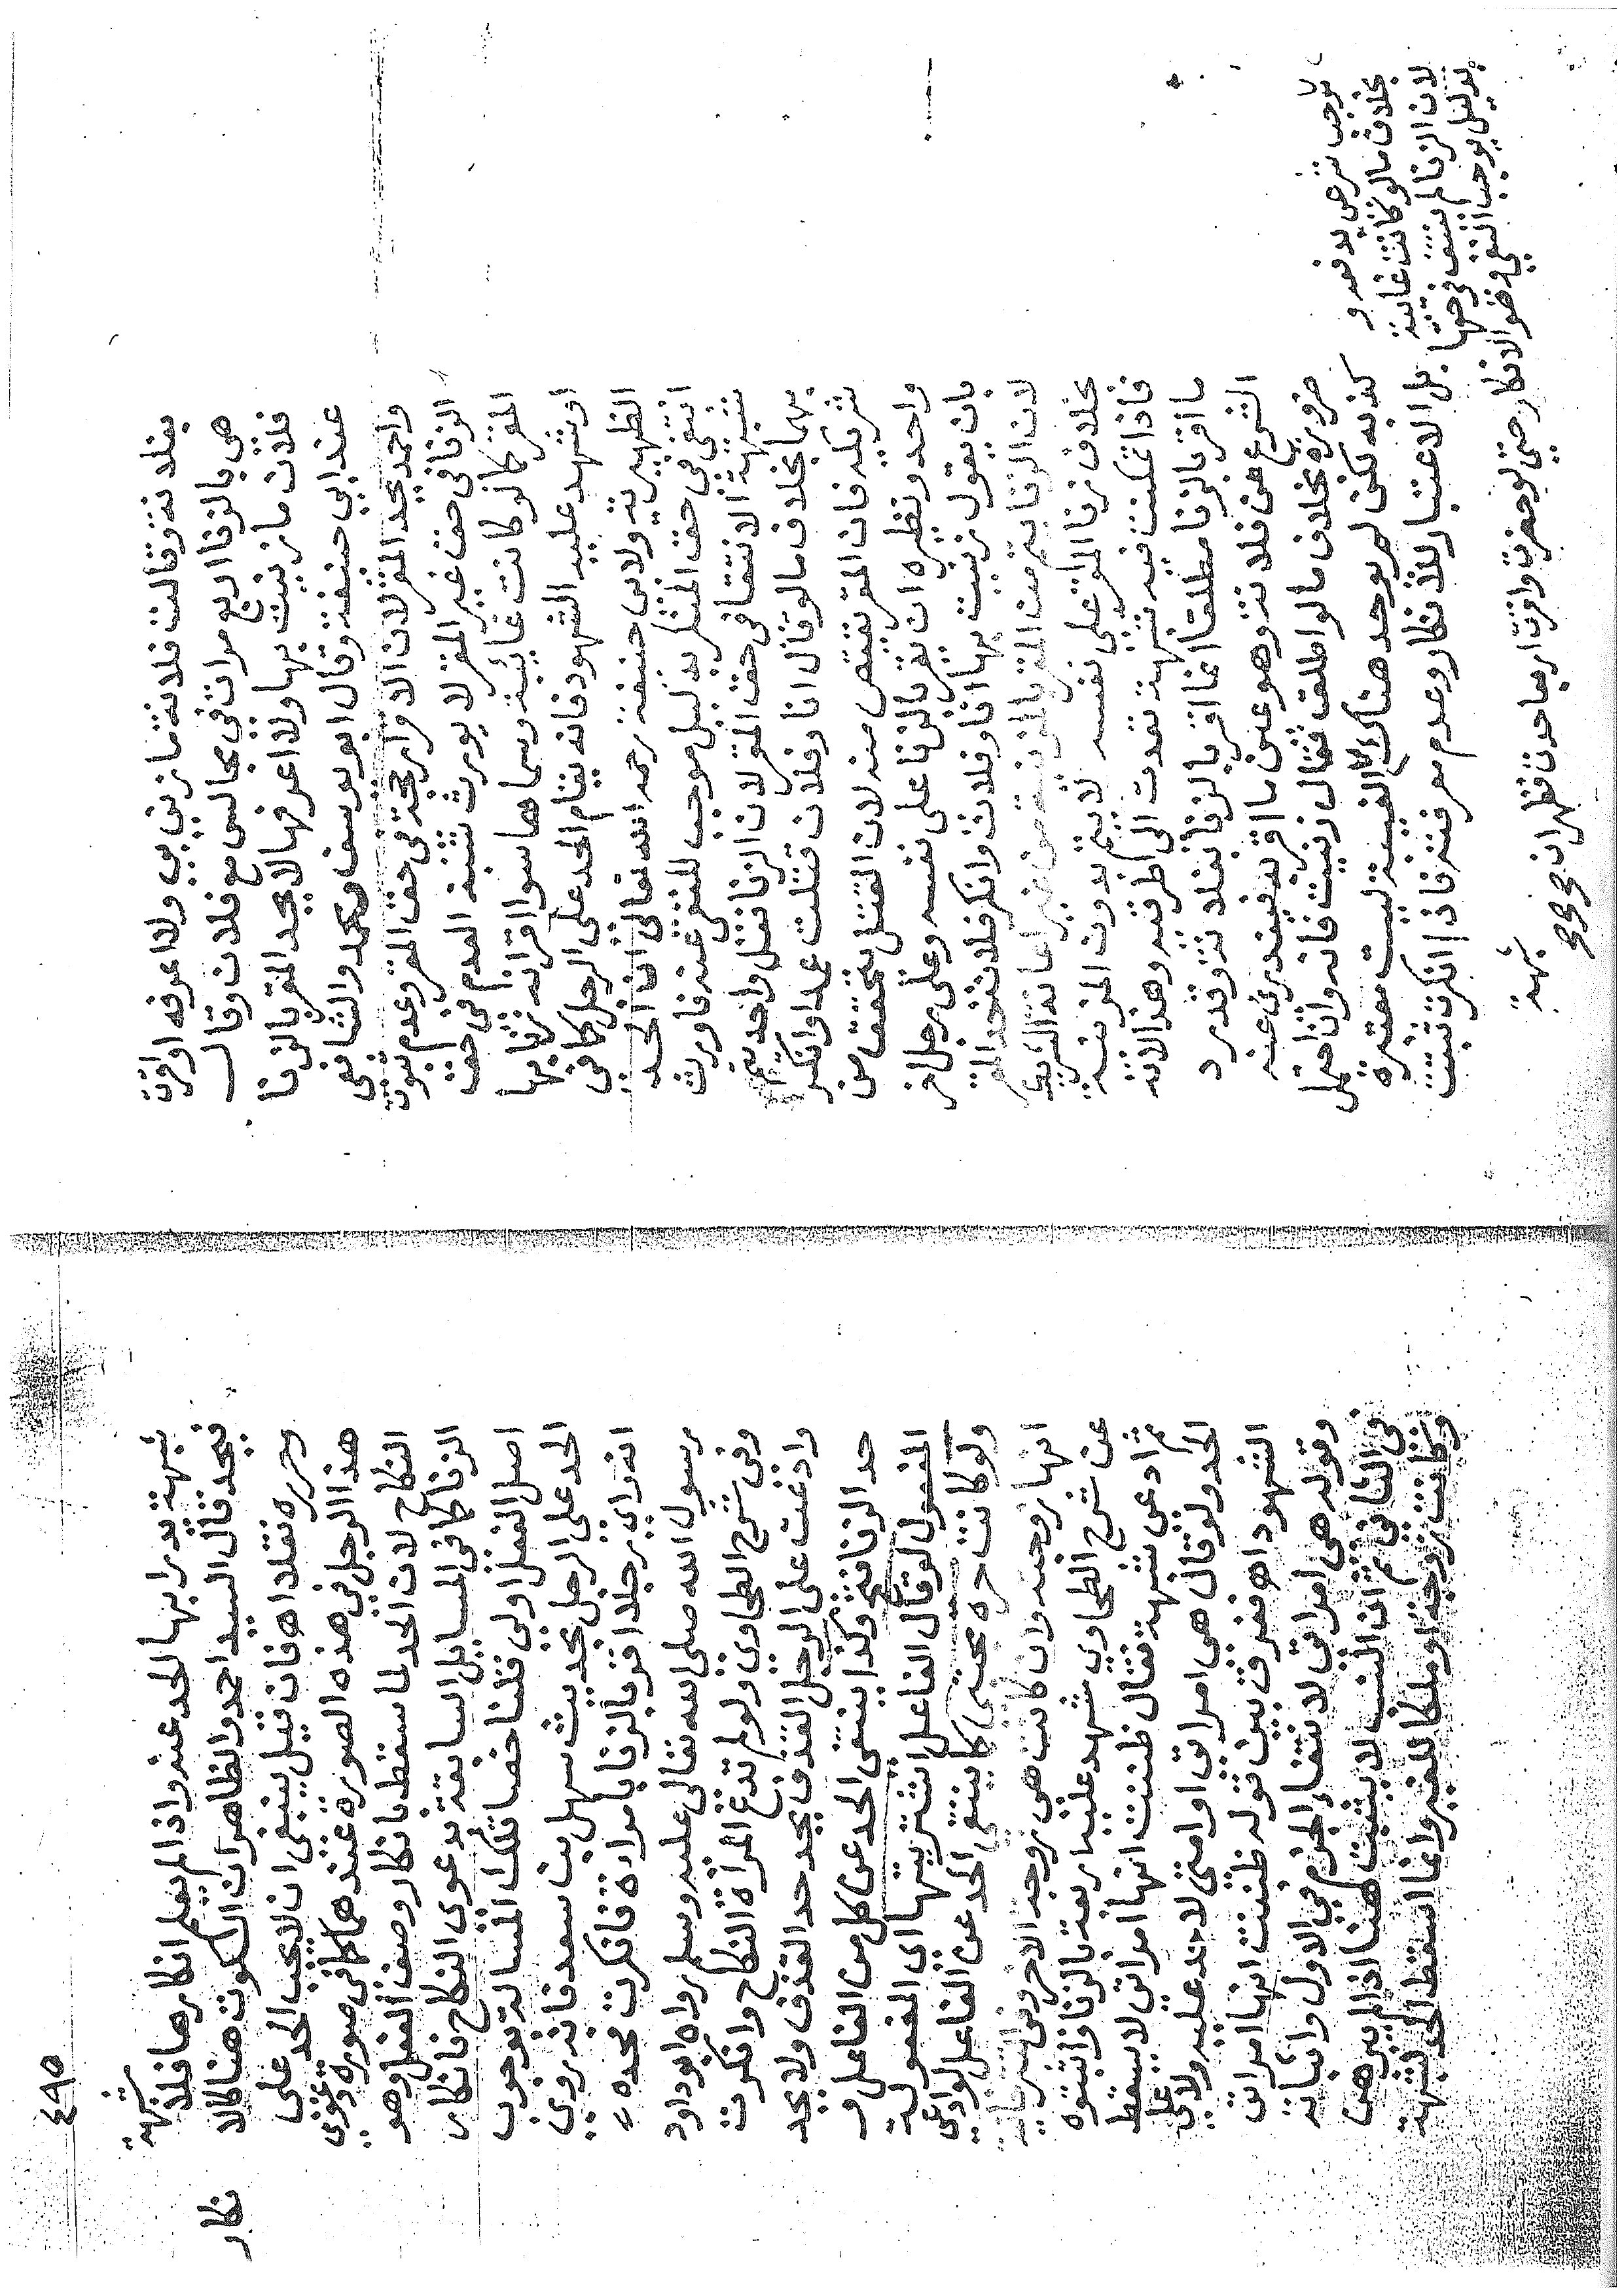 بفلانة وقالت فلانة ما زنى بي ولا اعرفه او اقرت
هي بالزنا اربع مرات في مجالس مع فلان وقال
فلان ما زنيت بها ولا اعرفها لا يحد المقر بالزنا
عند ابي حنيفة وقال ابو يوسف ومحمد والشافعي
واحمد يحد المقر لان الاقرار حجة في حق المقر وعدم ثبوت
الزنا في حق غير المقر لا يورث شبهة العدم في حق
المقر كما لو كانت غائبة وسماها سوا اقر انه زنا بها
او شهد عليه الشهود فانه يقام الحد على الرجل كما في
الظهيرية ولابي حنيفة رحمه الله تعالى ان الحد
انتفى في حق المنكر بدليل موجب للنفي عنه فاورث
شبهة الانتفا في حق المقر لان الزنا فعل واحد يتم
بهما بخلاف ما لو قال انا وفلان قتلت عمدا وانكر
شريكه فان المقر يقتص منه لان القتل يتحقق من
واحد ونظيره ان يقر بالزنا على نفسه وعلى رجل اخر
بان يقول زنيت بها انا وفلان وانكر فلان يحد المقر
لان الزنا يتم من المقر بالمزنية من غير اعانة الشريك
بخلاف زنا المقر على نفسه لا يتم بدون المزنية
فاذا تمكنت فيه شبهة تعدت الى طرفيه وهذا لانه
ما اقر بالزنا مطلقا انما اقر بالزنا بفلانة وقد رد
الشرع عن فلانة وهو عين ما اقر به فيندرئ عنه
ضرورة بخلاف ما لو اطلق فقال زنيت فانه وان احتمل
كذبه لكن لم يوجد هناك الغيبة ليست معتبرة
بل الاعتبار للانكار وعدم معرفته فاذا انكرت تثبت
يوجب شرعي يدفعه و
بخلاف ما لو كانت غايبة
لان الزنا لم ينتف في حقها
بدليل يوجب النفي وهو الانكار حتى لو حضرت واقرت اربعا حدت فظهر ان
شبهة
٤٩٥
شبهة
شبهة يدرا بها الحد عنه واذا لم يعلم انكارها فلا
نكار
فيحد قال السيد احمد والظاهر ان السكوت هنا كالا
وحرره نقلا اه فان قيل ينبغي ان لا يجب الحد على
هذا الرجل في هذه الصورة عندهما كما في صورة دعوى
النكاح لان الحد لما سقط بانكار وصف الفعل وهو
الزنا كما في المسايل السابقة بدعوى النكاح فانكار
اصل الفعل اولى قلنا خصا تلك المسالة بوجوب
الحد على الرجل بحديث سهل بن سعد فانه روي
انه راى رجلا اقر بالزنا بامراة فانكرت فحده
رسول الله صلى الله تعالى عليه وسلم رواه ابو داود
وفي شرح الطحاوي ولو لم تدع المرأة النكاح وانكرت
وادعت على الرجل القذف يحد حد القذف ولا يحد
حد الزنا فتح وكذا ينتفي الحد عن كل من الفاعل و
المفعول لو قال الفاعل اشتريتها اى المفعولة
ولو كانت حرة مجتبى كما ينتفي الحد عن الفاعل لو ادعى
انها زوجته وان كانت هي زوجة الاخر
عن شرح الطحاوي شهد عليه اربعة بالزنا واثبتوه
ثم ادعى شبهة فقال ظننت انها امراتي لا يسقط
الحد ولو قال هي امراتي او امتي لا حد عليه ولا على
الشهود اه ففرق بين قوله ظننت انها امراتي
وقوله هي امراتي لانتفاء الجزم في الاول واثباته
في الثاني ثم ان النسب لا يثبت هنا اذا لم يبرهن
وكانت زوجة او ملكا للغير وانما اسقط الحد لشبهة